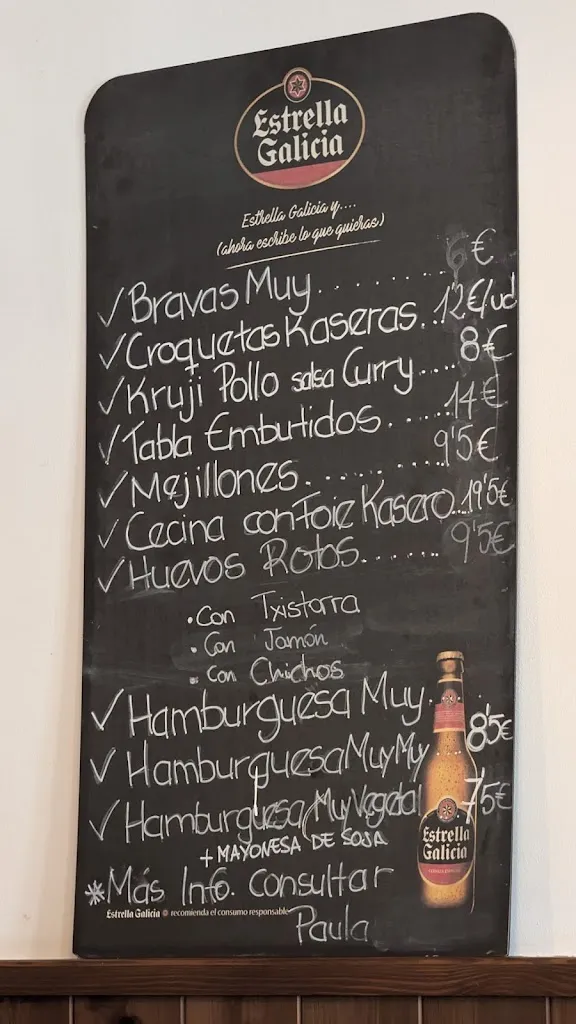 Estrella
Galicia
Estrella Galicia y....
(ahora escribe lo que quieras)
✓ Bravas Muy.......... 6 €
✓ Croquetas Kaseras.. 1'2€/ud
✓ Kruji Pollo salsa Curry.... 8€
✓ Tabla Embutidos...... 14€
✓ Mejillones.......... 9'5€
✓ Cecina con Foie Kasero.. 19'5€
✓ Huevos Rotos....... 9'5€
• Con Txistorra
• Con Jamón
• Con Chichos
✓ Hamburguesa Muy...
✓ Hamburguesa MuyMuy 8'5€
✓ Hamburguesa MuyVegetal 7'5€
+ MAYONESA DE SOJA
Estrella
Galicia
* Más Info. consultar
Estrella Galicia recomienda el consumo responsable
Paula